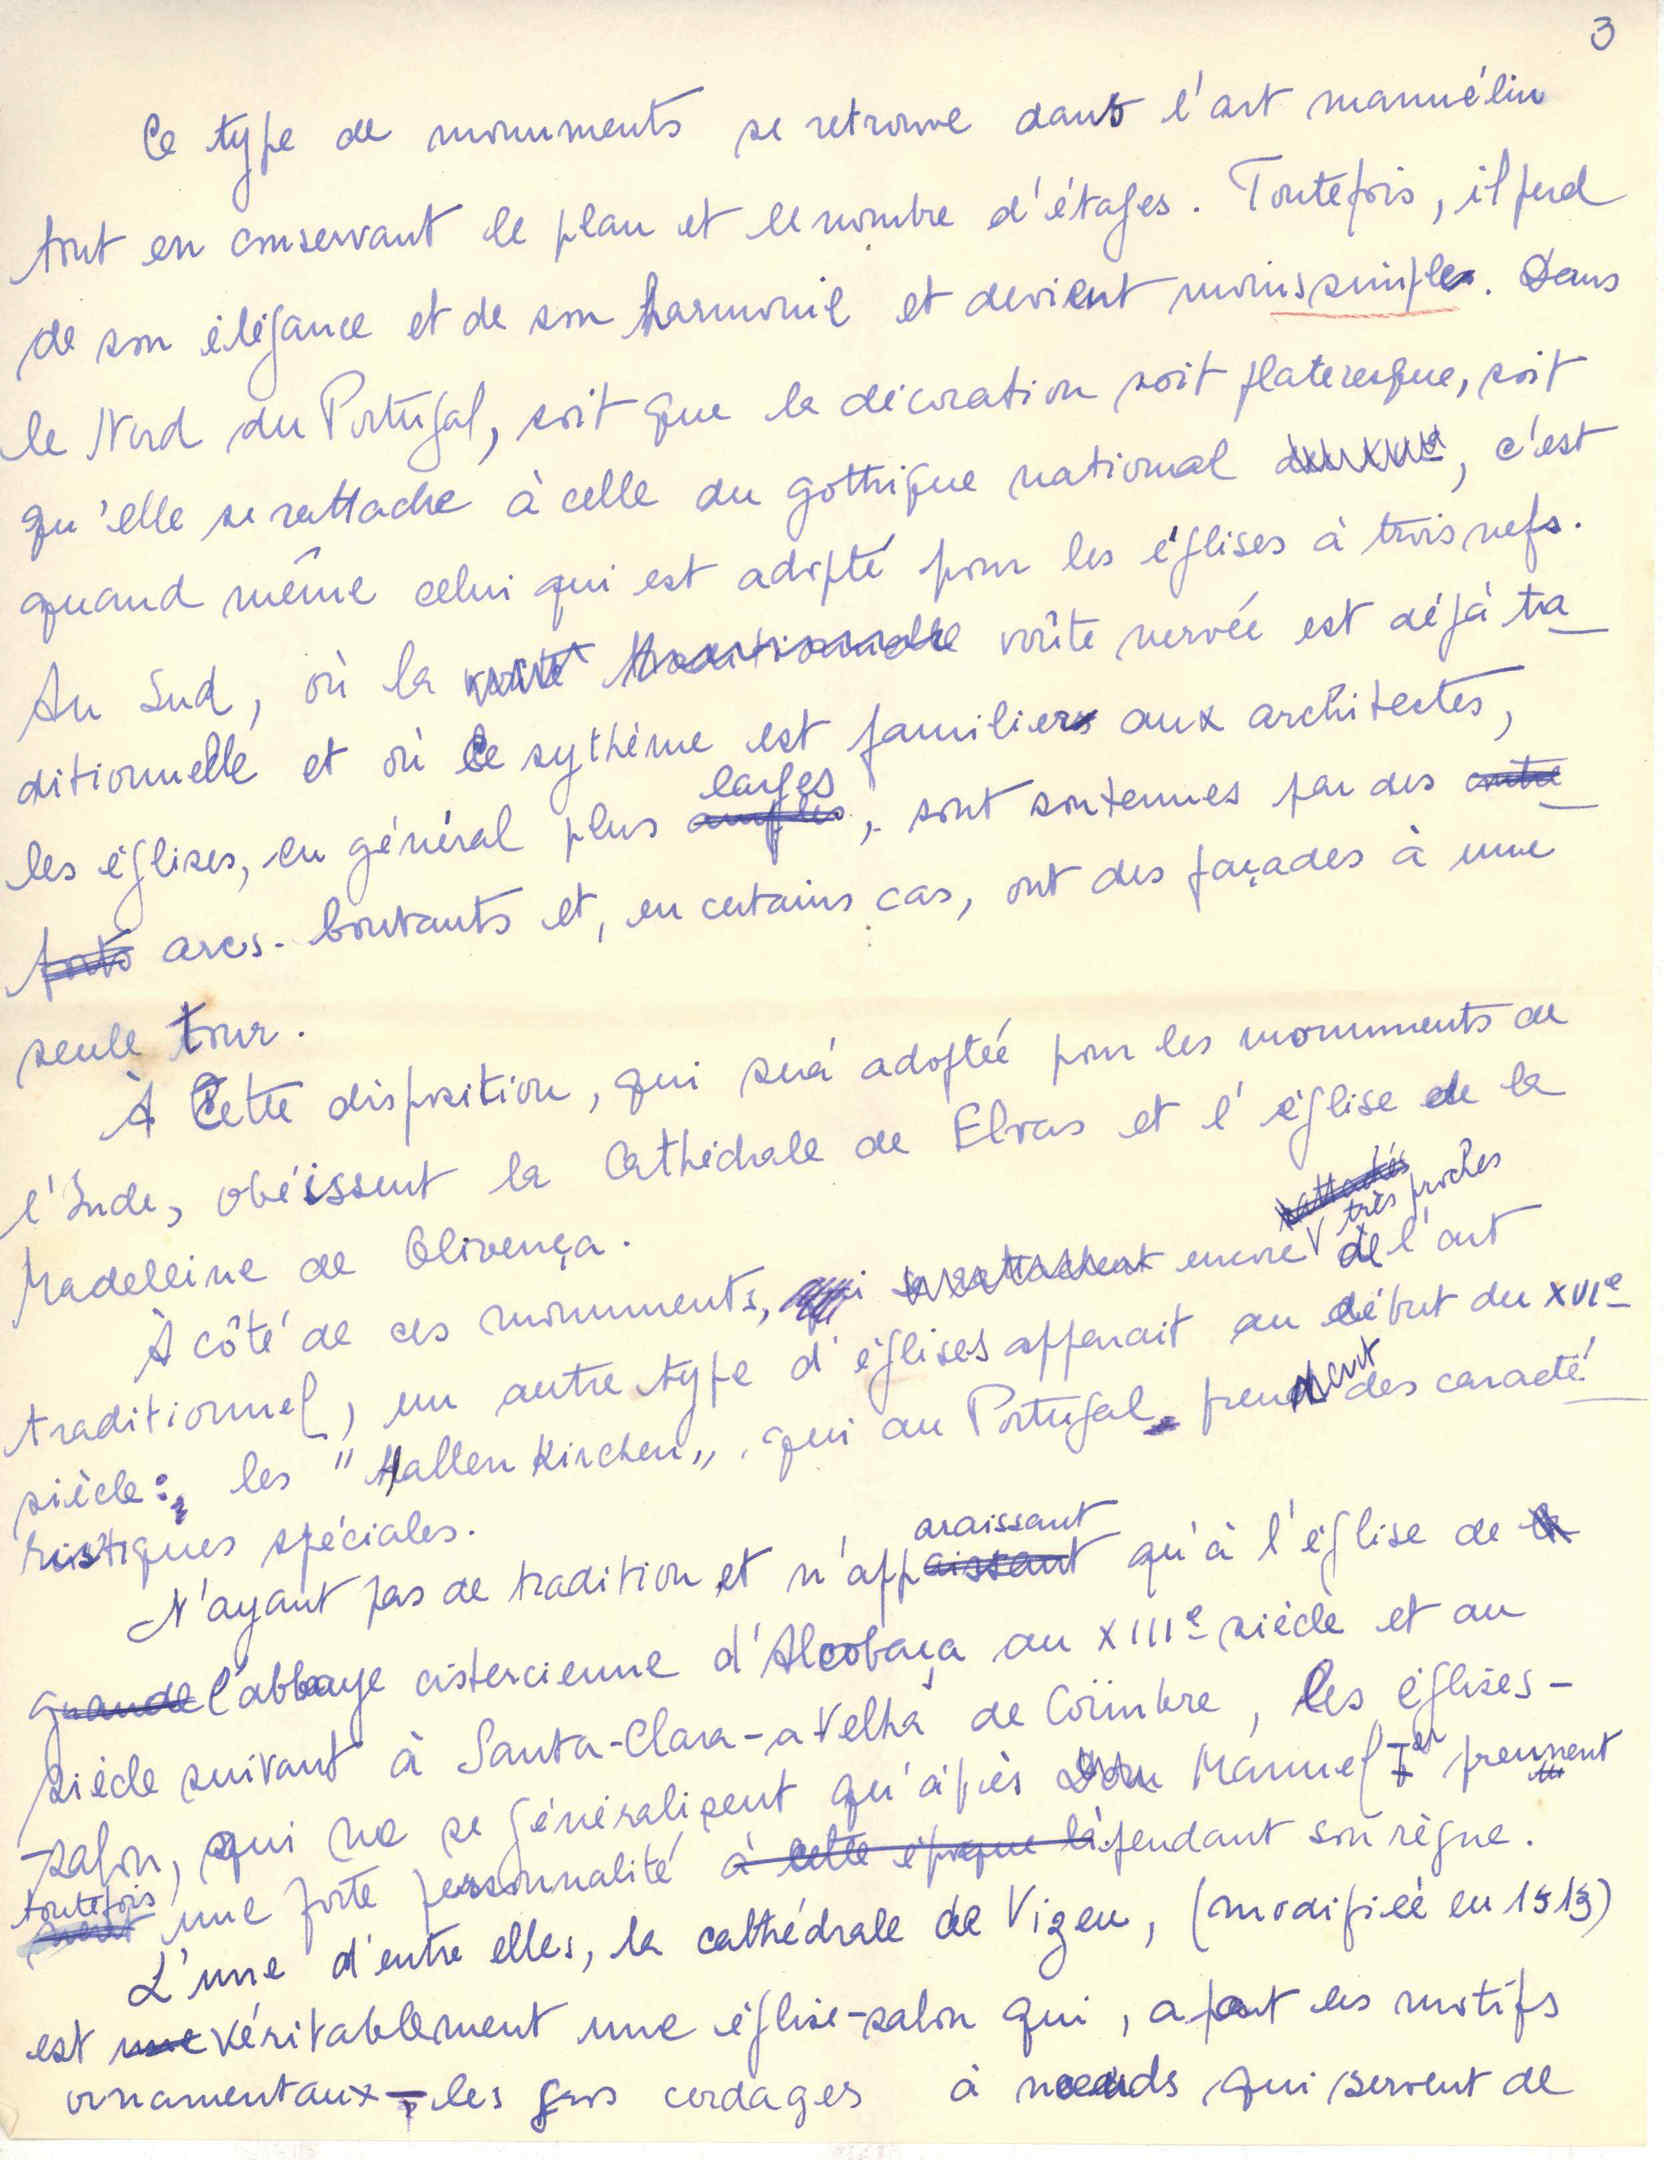 3
Ce type de monuments se retrouve dans l'art manuélin
tout en conservant le plan et le nombre d'étages. Toutefois, il perd
de son élégance et de son harmonie et devient moins simple. Dans
le Nord du Portugal, soit que la décoration soit plateresque, soit
qu'elle se rattache à celle du gothique national , c'est
quand même celui qui est adopté pour les églises à trois nefs.
Au Sud, où la voûte traditionnelle voûte nervée est déjà tra
ditionnelle et où le sythème est familier aux architectes,
larges
les églises, en général plus amples, sont soutenues par des contre
forts arcs-boutants et, en certains cas, ont des façades à une
seule tour.
À Cette disposition, qui será adoptée pour les monuments de
l'Inde, obéissent la Cathédrale de Elvas et l'église de la
Madeleine de Olivença.
rattachés très proches
À côté de ces monuments, qui se rattachent encore de l'art
traditionnel, un autre type d'églises apparait au début du XVIe
siècle: les "Hallen Kirchen" qui au Portugal prennent des caracté
ristiques spéciales.
araissant
N'ayant pas de tradition et n'appaissant qu'à l'église de la
grande l'abbaye cistercienne d'Alcobaça au XIIIe siècle et au
siècle suivant à Santa-Clara-a-Velha de Coïmbre, les églises-
-salon, qui ne se généralisent qu'après Dom Manuel Ier prennent
toutefois une forte personnalité à cette époque là pendant son règne.
L'une d'entre elles, la cathédrale de Vizeu, (modifiée en 1513)
est une véritablement une église-salon qui, a part les motifs
ornamentaux, les gros cordages à noeuds qui servent de